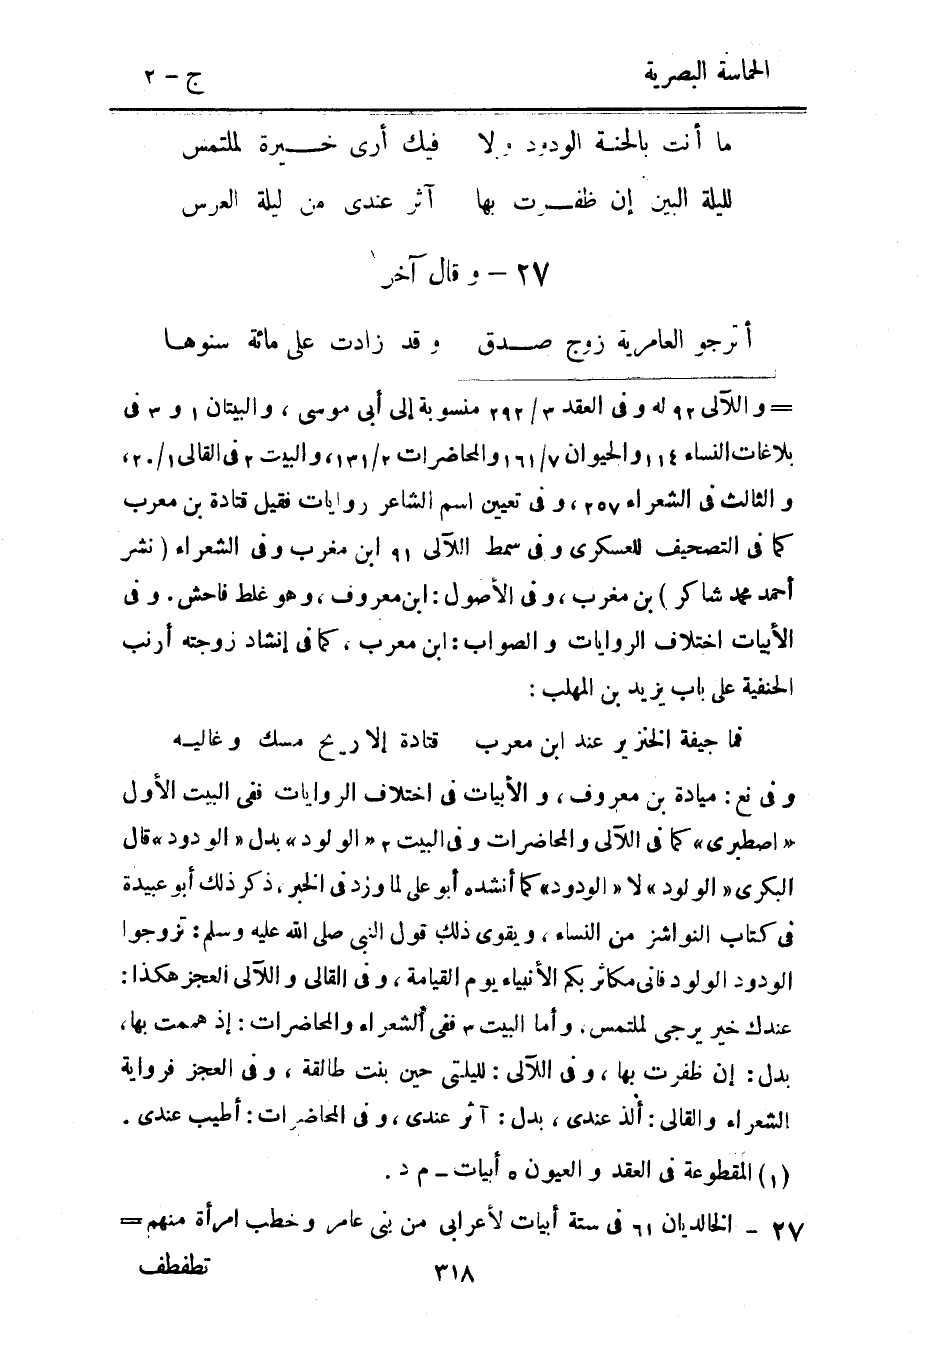 الحماسة البصرية ج – ٢
ما أنت بالحنة الودود ولا فيك أرى خـــيرة لملتمس
لليلة البين إن ظفـــرت بها آثر عندى من ليلة العرس
٢٧ – و قال آخر١
أترجو العامرية زوج صـــدق و قد زادت على مائة سنوها
= و اللآلى ٩٢ له و فى العقد ٣/ ٢٩٢ منسوبة إلى أبي موسى، والبيتان ١ و ٣ فى
بلاغات النساء ١١٤ والحيوان ٧/ ١٦١ والمحاضرات ٢/ ١٣١، والبيت ٢ فى القالى ١/ ٢٠،
و الثالث فى الشعراء ٢٥٧، و فى تعيين اسم الشاعر روايات فقيل قتادة بن معرب
كما فى التصحيف للعسكرى و فى سمط اللآلى ٩١ ابن مغرب و فى الشعراء ( نشر
أحمد محمد شاكر ) بن مغرب، و فى الأصول: ابن معروف، و هو غلط فاحش. و فى
الأبيات اختلاف الروايات و الصواب: ابن معرب، كما فى إنشاد زوجته أرنب
الحنفية على باب يزيد بن المهلب:
فما جيفة الخنزير عند ابن معرب قتادة إلا ريح مسك و غاليـه
و فى نع: ميادة بن معروف، و الأبيات فى اختلاف الروايات ففى البيت الأول
«اصطبرى» كما فى اللآلى و المحاضرات و فى البيت ٢ «الولود» بدل «الودود» قال
البكرى «الولود» لا «الودود» كما أنشده أبو على لما ورد فى الخبر، ذكر ذلك أبو عبيدة
فى كتاب النواشز من النساء، و يقوى ذلك قول النبي صلى الله عليه وسلم: تزوجوا
الودود الولود فانى مكاثر بكم الأنبياء يوم القيامة، و فى القالى و اللآلى العجز هكذا:
عندك خير يرجى لملتمس. و أما البيت ٣ ففى الشعراء والمحاضرات: إذ هممت بها،
بدل: إن ظفرت بها، و فى اللآلى: لليلتى حين بنت طالقة، و فى العجز فرواية
الشعراء والقالى: ألذ عندى، بدل: آثر عندى، و فى المحاضرات: أطيب عندى.
(١) المقطوعة فى العقد و العيون ٥ أبيات ـ م د.
٢٧ ـ الخالديان ٦١ فى ستة أبيات لأعرابى من بنى عامر و خطب امرأة منهم =
٣١٨ تطفطف